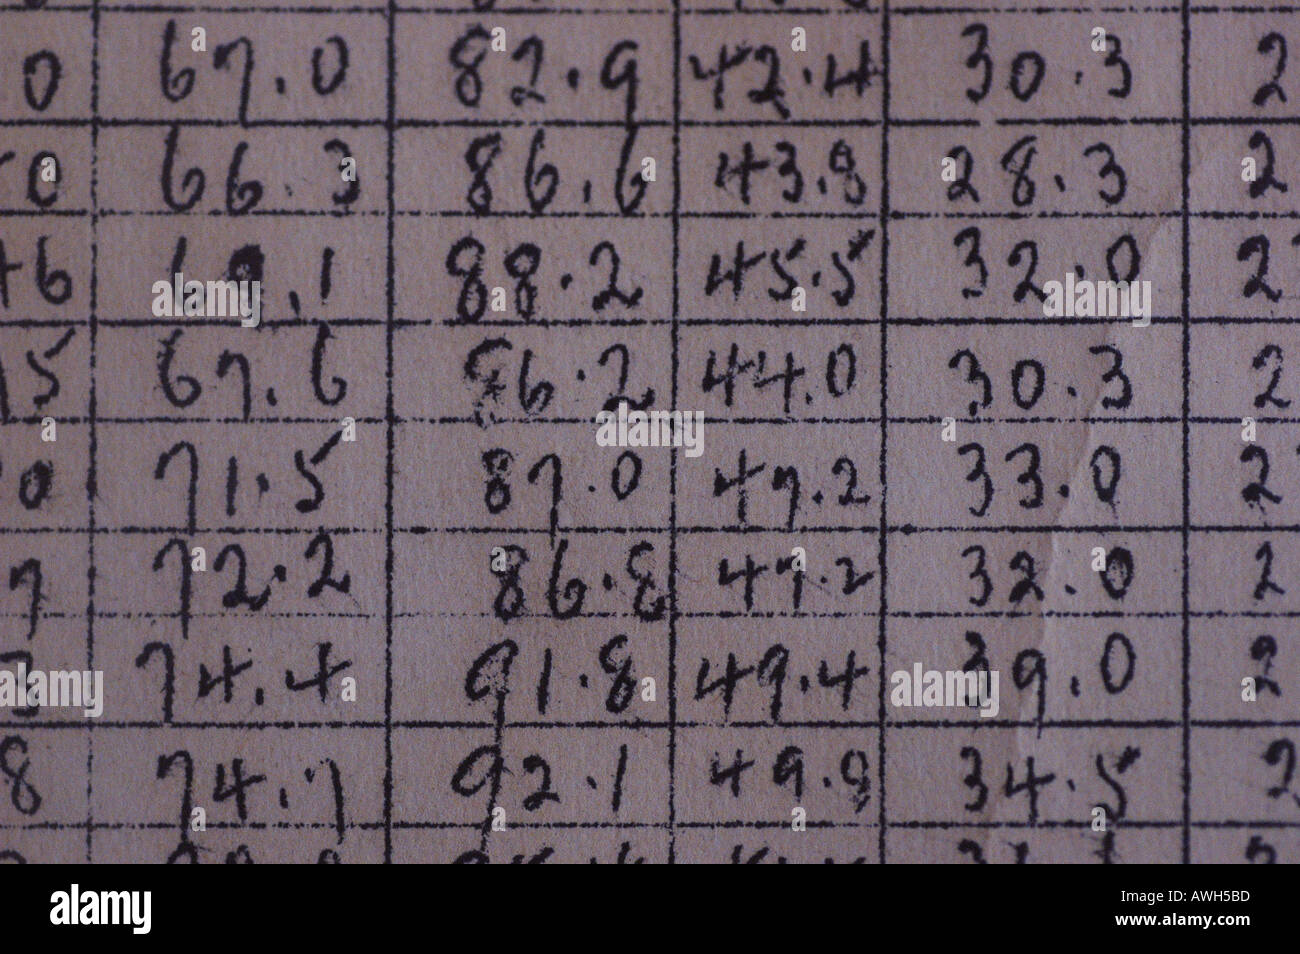 0 67.0 82.9 42.4 30.3 2
0 66.3 86.6 43.8 28.3 2
46 69.1 88.2 45.5 32.0 2
5 67.6 86.2 44.0 30.3 2
0 71.5 87.0 47.2 33.0 2
7 72.2 86.8 47.2 32.0 2
3 74.4 91.8 49.4 39.0 2
8 74.7 92.1 49.8 34.5 2
alamy
alamy
Image ID: AWH5BD
www.alamy.com